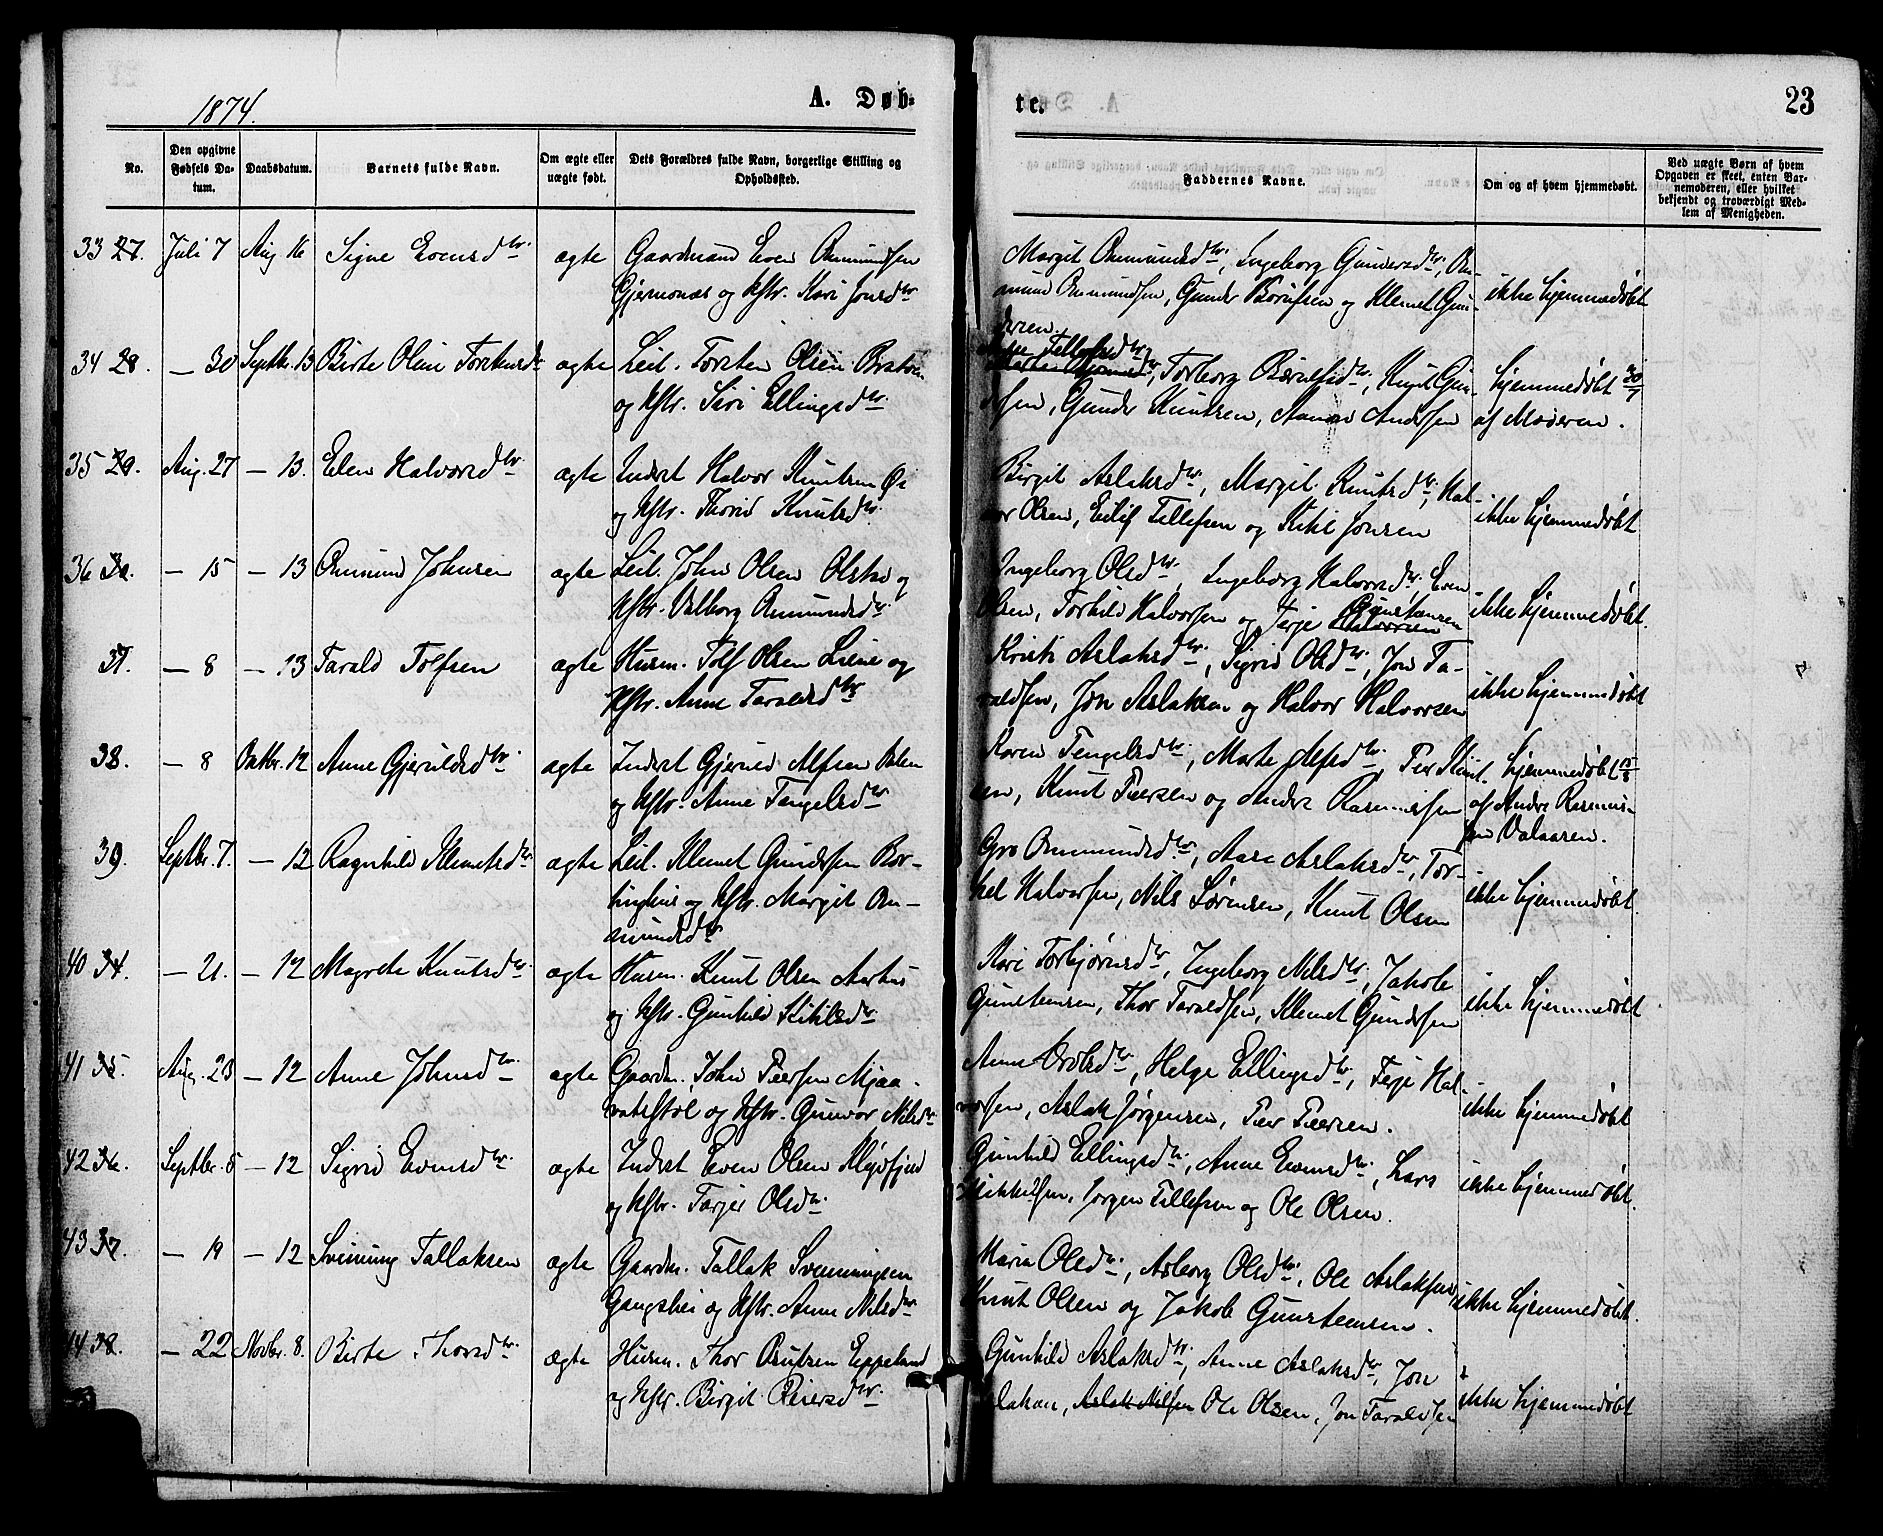 1874.
A. Døb-
te.
23
No.
Den opgivne
Fødsels Da-
tum.
Daabsdatum.
Barnets fulde Navn.
Om ægte eller
uægte født.
Dets Forældres fulde Navn, borgerlige Stilling og
Opholdssted.
Faddernes Navne.
Om og af hvem hjemmedøbt.
Ved uægte Børn af hvem
Opgaven er skeet, enten Bar-
nemoderen, eller hvilket
bekjendt og troværdigt Med-
lem af Menigheden.
33 27. Juli 7 Aug 16 Signe Evensdtr. ægte Gaardmand Even Omundsen
og Hstr. Kari Jonsdtr
Margit Omundsdtr, Ingeborg Gundersdtr, Om-
mund Ommundsen, Gunder og Klemet Gun-
dersen.
ikke hjemmedøbt
34 28. — 30 Septbr. 13 Birte Oline Torstensdtr ægte Leil. Torsten Olsen
og Hstr. Siri Ellingsdtr
Tellefsdtr
Torborg Knut Gun-
sen, Gunder Knutsen, Andersen
hjemmedøbt 30/7
af Moderen.
35 29. Aug. 27 — 13. Elen Halvorsdtr ægte Inderst Halvor Knutsen
og Hstr. Thorid Knutsdtr.
Birgit Aslaksdtr, Margit Knutsdtr, Hal-
vor Olsen, Eilif Tellefsen og Kitil Jonsen
ikke hjemmedøbt
36 30. — 15 — 13 Omund Johnsen ægte Leil. John Olsen og
Hstr. Valborg Omundsdtr.
Ingeborg Olsdtr, Ingeborg Halvorsdtr, Even
Olsen, Torkild Halvorsen og Terje Gunstensen
Halvorsen
ikke hjemmedøbt.
37. — 8 — 13 Tarald Tolfsen ægte Husm. Tolf Olsen og
Hstr. Anne Taraldsdtr
Kristi Aslaksdtr, Sigrid Olsdtr, Jon Ta-
raldsen, Jon Aslaksen og Halvor Halvorsen
ikke hjemmedøbt
38. — 8 Oktbr. 12 Anne Gjeruldsdtr ægte Inderst Gjeruld Alfsen
og Hstr. Anne Tengelsdtr
Karen Tengelsdtr, Marte Alfsdtr, Peer Knut-
sen, Knut Peersen og Andre Rasmussen
hjemmedøbt
af Andre Rasmus-
sen Valaasen.
39. Septbr. 7. — 12 Ragnhild Klemetsdtr ægte Leil. Klemet Gundersen
og Hstr. Margit Om-
mundsdtr
Gro Ommundsdtr, Aase Aslaksdtr, Tor-
kel Halvorsen, Nils Sørensen, Knut Olsen
ikke hjemmedøbt.
40 34. — 21. — 12 Magrete Knutsdtr ægte Husm. Knut Olsen
og Hstr. Gunhild Kitilsdtr
Kari Torbjørnsdtr, Ingeborg Nilsdtr, Jakob
Gunstensen, Thor Taraldsen, Klemet Gundersen
ikke hjemmedøbt
41 35. Aug. 23 — 12 Anne Johnsdtr. ægte Gaardm. John Peersen Mjaa-
vatsstøl og Hstr. Gunvor Nilsdtr
Anne Helge Ellingsdtr, Terje Hal-
vorsen, Aslak Jørgensen, Peer Peersen.
ikke hjemmedøbt
42 36. Septbr. 5 — 12 Sigrid Evensdtr. ægte Inderst Even Olsen
og Hstr. Tarjer Olsdtr.
Gunhild Ellingsdtr, Anne Evensdtr, Lars
Mikkelsen, Jørgen Tellefsen og Ole Olsen.
ikke hjemmedøbt.
43 37. — 19 — 12 Svenning Tallaksen ægte Gaardm. Tallak Svenningsen
Gangshei og Hstr. Anne Nilsdtr
Maria Olsdtr, Asborg Olsdtr, Ole Aslaksen,
Knut Olsen og Jakob Gunstensen.
ikke hjemmedøbt.
44 38. — 22 Novbr. 8. Birte Thorsdtr. ægte Husm. Thor Eppeland
og Hstr. Birgit Reiersdtr.
Gunhild Aslaksdtr, Anne Aslaksdtr, Jon
Aslak Nilsen Ole Olsen, Jon Taraldsen
ikke hjemmedøbt